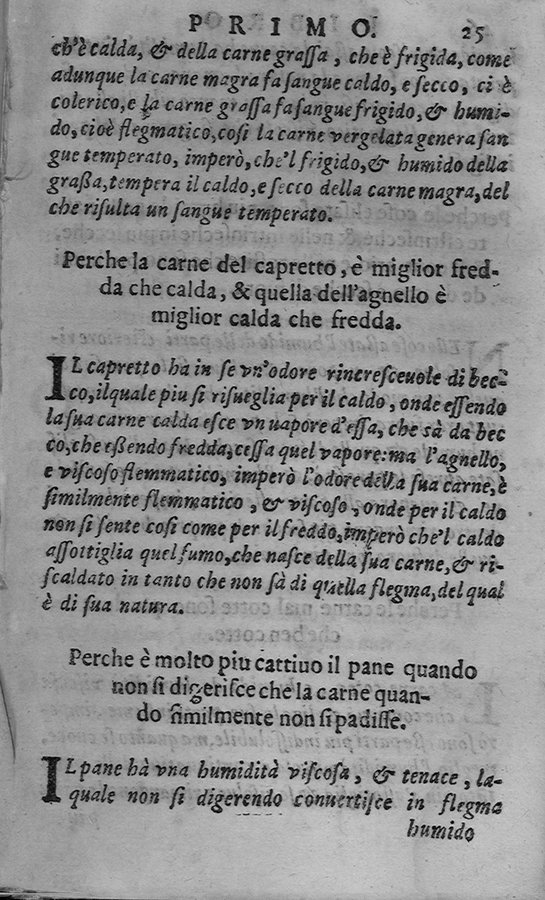 PRIMO. 25
ch'è calda, & della carne graſſa, che è frigida, come
adunque la carne magra fa ſangue caldo, e ſecco, ci è
colerico, e la carne graſſa fa ſangue frigido, & humi-
do, cioè flegmatico, coſi la carne vergelata genera ſan
gue temperato, imperò, che'l frigido, & humido della
graßa, tempera il caldo, e ſecco della carne magra, del
che riſulta un ſangue temperato.
Perche la carne del capretto, è miglior fred-
da che calda, & quella dell'agnello è
miglior calda che fredda.
IL capretto ha in ſe vn'odore rincreſceuole di bec-
co, ilquale piu ſi riſueglia per il caldo, onde eſſendo
la ſua carne calda eſce vn uapore d'eſſa, che sà da bec
co, che eßendo fredda, ceſſa quel vapore: ma l'agnello,
e viſcoſo flemmatico, imperò l'odore della ſua carne, è
ſimilmente flemmatico, & viſcoſo, onde per il caldo
non ſi ſente coſi come per il freddo, imperò che'l caldo
aſſottiglia quel fumo, che naſce della ſua carne, & ri-
ſcaldato in tanto che non ſà di quella flegma, del qual
è di ſua natura.
Perche è molto piu cattiuo il pane quando
non ſi digeriſce che la carne quan-
do ſimilmente non ſi padiſſe.
IL pane hà vna humidità viſcoſa, & tenace, la-
quale non ſi digerendo conuertiſce in flegma
humido